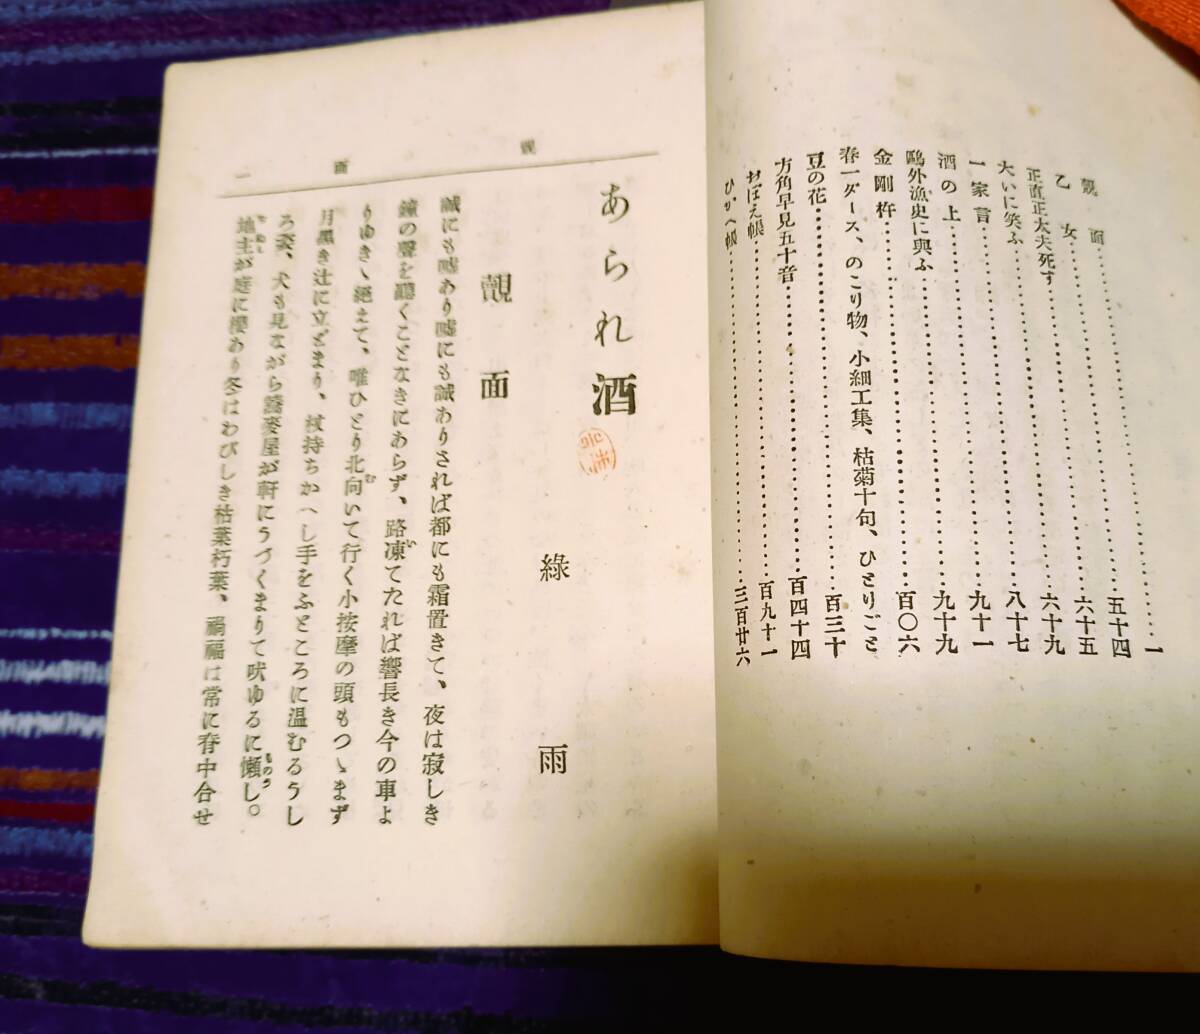 覿面……一
乙女……五十四
正直正太夫死す……六十五
大いに笑ふ……六十九
一家言……八十七
酒の上……九十一
鷗外漁史に與ふ……九十九
金剛杵……百〇六
春一ダース、のこり物、小細工集、枯菊十句、ひとりごと
豆の花……百三十
方角早見五十音……百四十四
おぼえ帳……百九十一
ひかへ帳……三百廿六
覿面 一
あられ酒
綠雨
覿面
誠にも噓あり噓にも誠ありされば都にも霜置きて、夜は寂しき
鐘の聲を聽くことなきにあらず、路凍てたれば響長き今の車よ
りゆきゝ絕えて、唯ひとり北向いて行く小按摩の頭もつゝまず
月黑き辻に立どまり、杖持ちかへし手をふところに溫むるうし
ろ姿、犬も見ながら蕎麥屋が軒にうづくまりて吠ゆるに懶し。
地主が庭に櫻あり冬はわびしき枯葉朽葉、禍福は常に脊中合せ